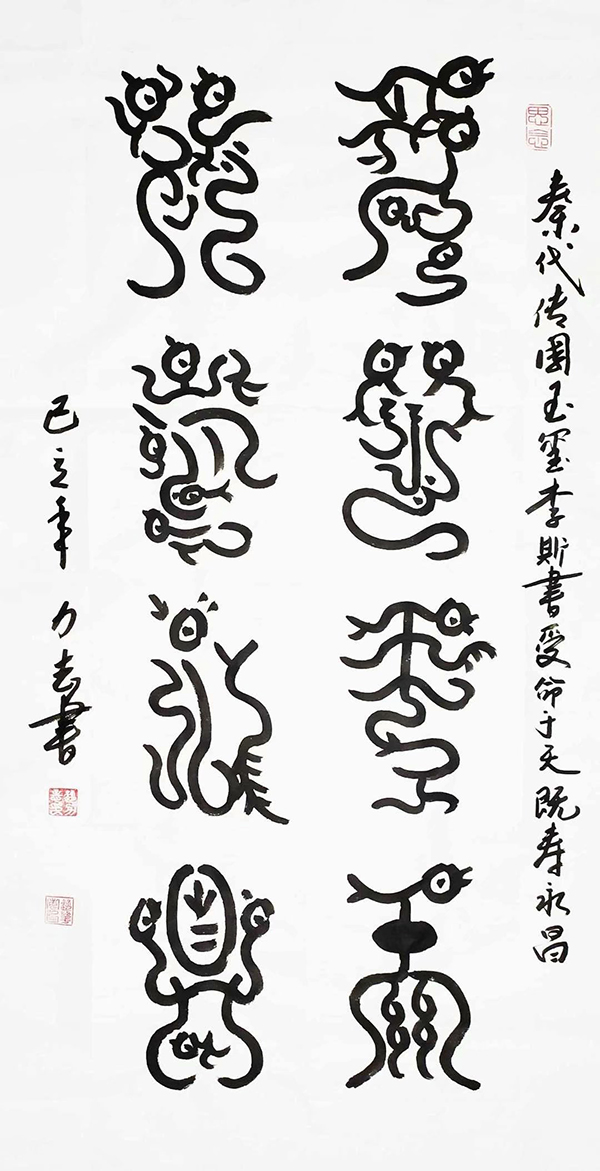 秦代传國玉璽李斯書受命于天既寿永昌
受命于天
既壽永昌
己丑年 力志書